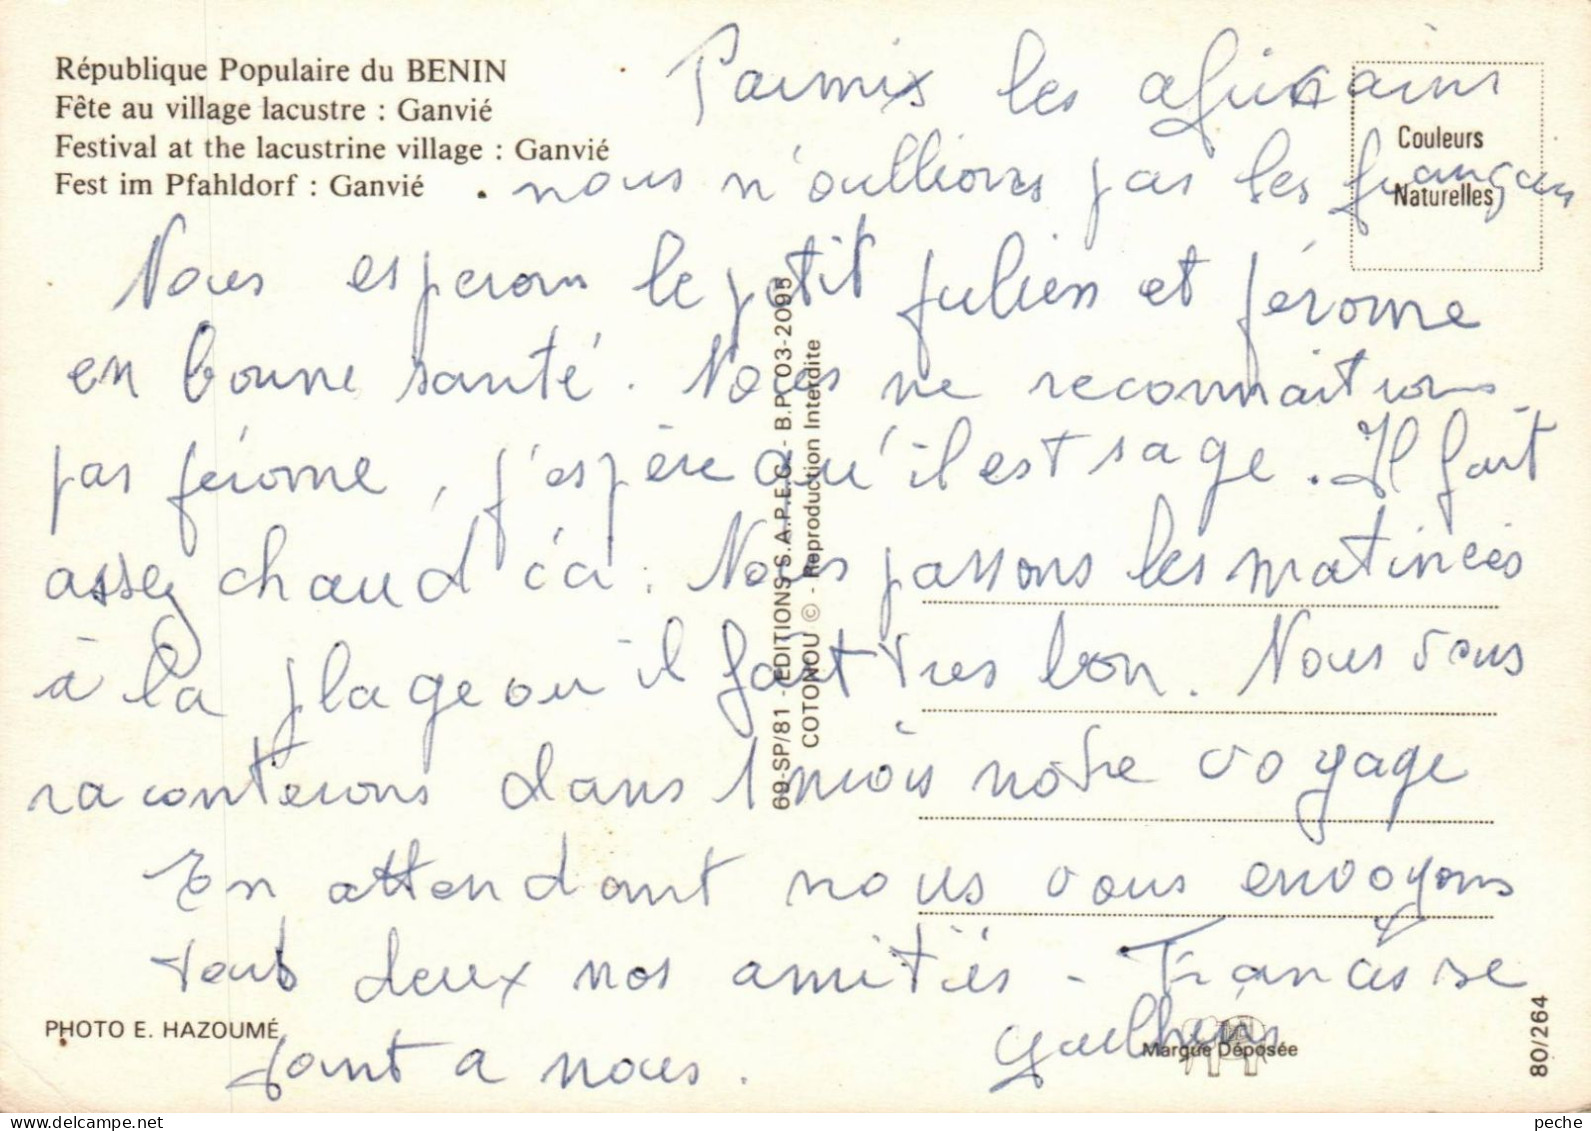 République Populaire du BENIN
Fête au village lacustre : Ganvié
Festival at the lacustrine village : Ganvié
Fest im Pfahldorf : Ganvié
Couleurs
Naturelles
Parmis les africains
nous n'oullions pas les français
Nous esperons le petit Julien et Jérome
en bonne santé. Nous ne reconnaitrons
pas Jérome, j'espère qu'il est sage. Il fait
assez chaud ici. Nous passons les matinées
à la plage ou il fait très bon. Nous vous
raconterons dans 1 mois notre voyage
En attendant nous vous envoyons
tous deux nos amitiés - Francisse
joint a nous. Guilhem
69-SP/81 - EDITIONS S.A.P.E.C. - B.P. 03-2095
COTONOU © - Reproduction Interdite
PHOTO E. HAZOUMÉ
Marque Déposée
80/264
peche